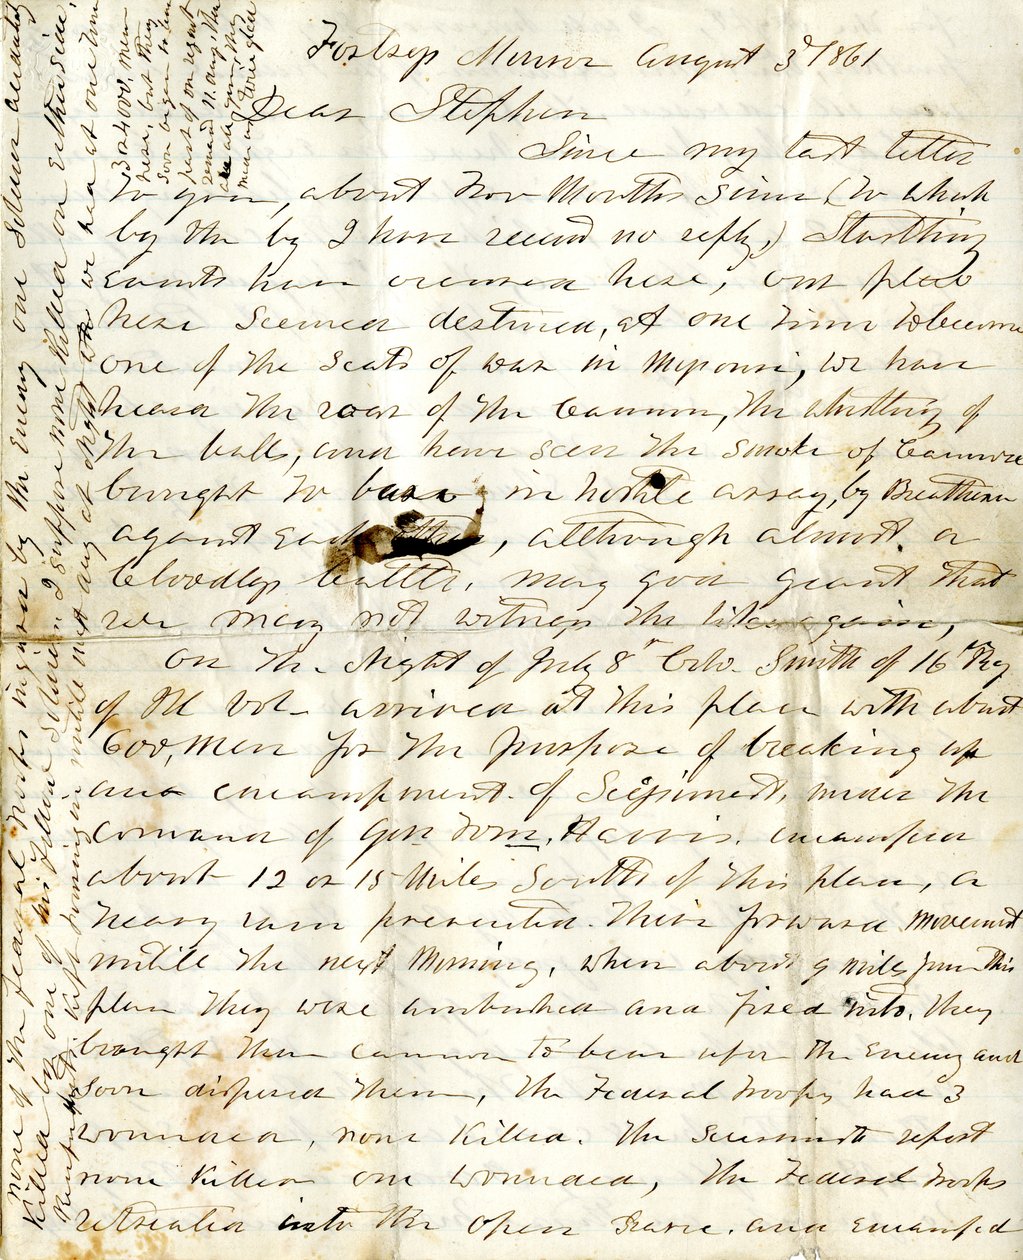 August 3d 1861
Dear Stephen
Since my last letter
to you, about two Months Since (to which
by the by I have received no reply,) Startling
events have occurred here, our place
here seemed destined, at one time to become
one of the seats of war in Missouri, we have
heard the roar of the Cannon, the whistling of
the balls, and have seen the smoke of Cannon
brought to bear in hostile array, by Breathern
against each other, although almost a
bloodless battle, may god grant that
we may not witness the like again,
On the Night of July 8th Col. Smith of 16th Reg
of Ill Vol arrived at this place with about
600, Men for the purpose of breaking up
an encampment of Secessionest, under the
command of Gen Tom. Harris. encamped
about 12 or 15 Miles South of this place, a
heavy rain prevented their forward movement
untill the next Morning, when about 9 miles from this
place they were ambushed and fired into. they
brought their cannon to bear upon the Enemy and
soon dispersed them, the Federal troops had 3
wounded, none killed. the report
none killed one wounded, the Federal troops
retreated into the open and encamped
none of the Federal troops injured by the enemy one Soldier accidently
killed by one of his fellow Soldiers I suppose none killed on either side,
kept coming in untill next day at Night we had at one time
3 or 4000, men
here, but they
soon began to
rest of our regt
remained